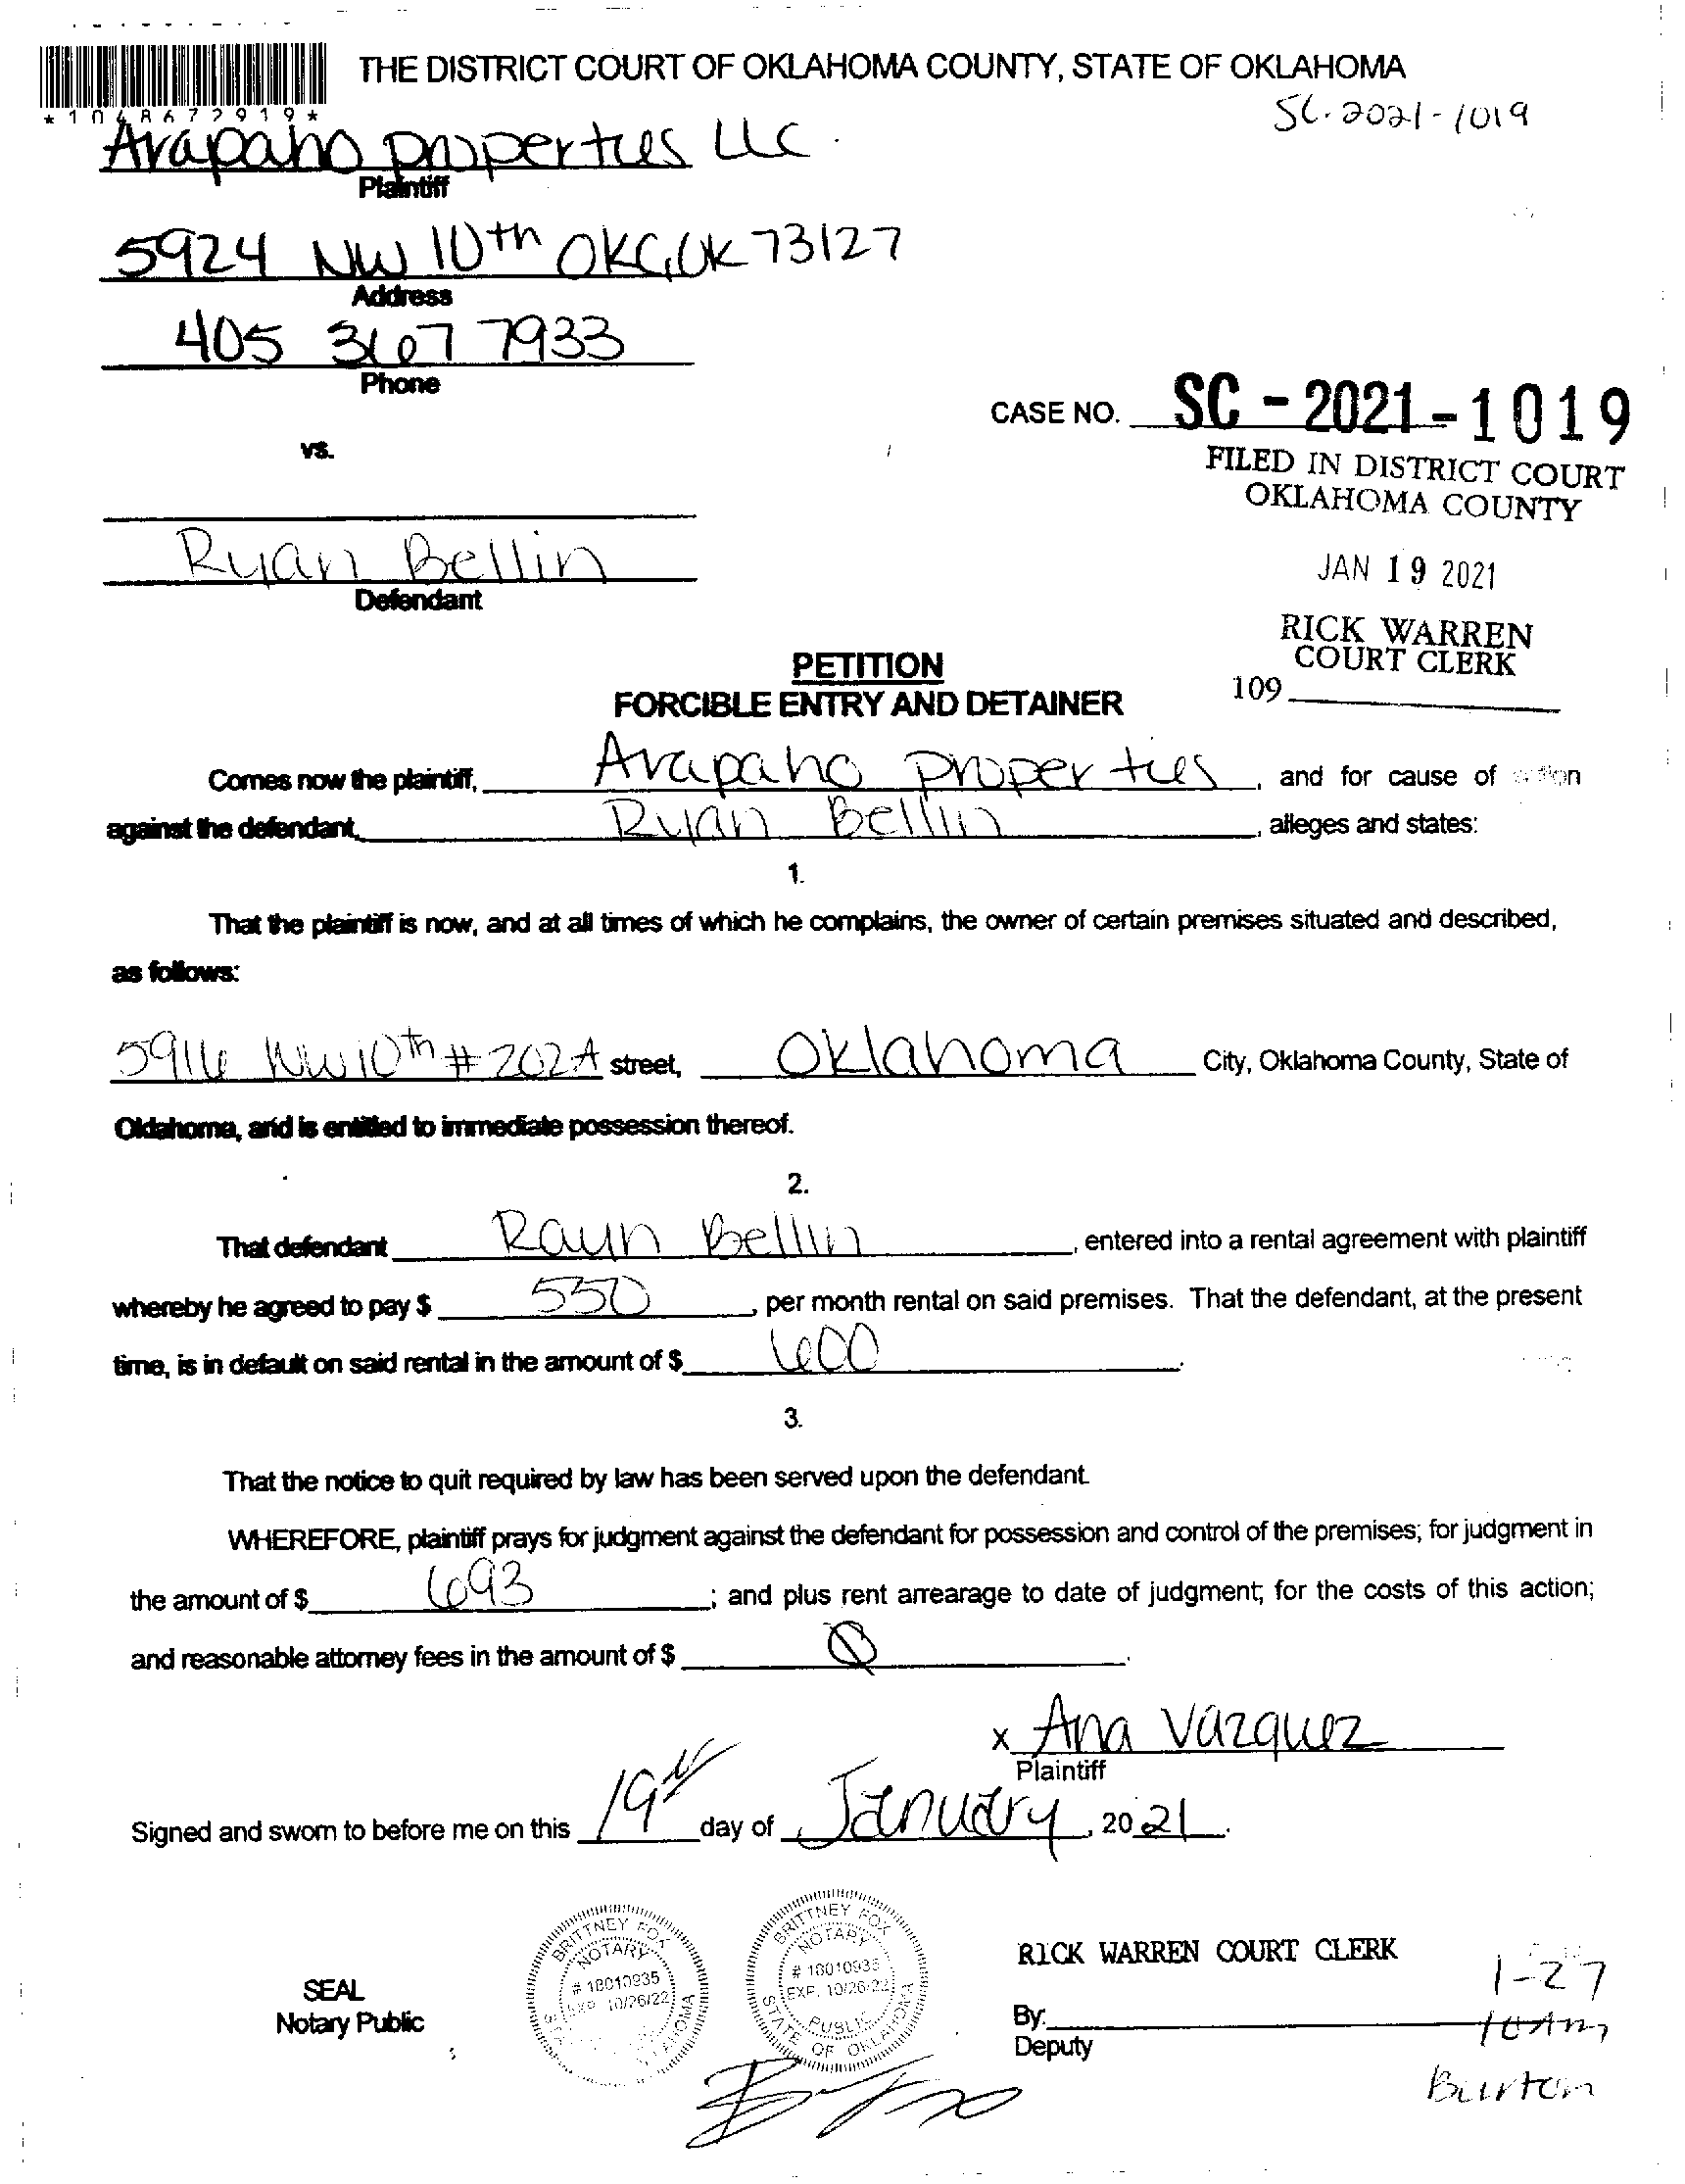 THE DISTRICT COURT OF OKLAHOMA COUNTY, STATE OF OKLAHOMA
*1048672919*
SC-2021-1019
Arapaho properties LLC.
Plaintiff
5924 NW 10th OKC, OK 73127
Address
405 367 7933
Phone
CASE NO. SC - 2021 - 1019
vs.
FILED IN DISTRICT COURT
OKLAHOMA COUNTY
Ryan Bellin
Defendant
JAN 19 2021
RICK WARREN
COURT CLERK
109
PETITION
FORCIBLE ENTRY AND DETAINER
Comes now the plaintiff, Arapaho properties, and for cause of action
against the defendant, Ryan Bellin, alleges and states:
1.
That the plaintiff is now, and at all times of which he complains, the owner of certain premises situated and described,
as follows:
5916 NW 10th # 202A street, Oklahoma City, Oklahoma County, State of
Oklahoma, and is entitled to immediate possession thereof.
2.
That defendant Rayn Bellin, entered into a rental agreement with plaintiff
whereby he agreed to pay $ 550, per month rental on said premises. That the defendant, at the present
time, is in default on said rental in the amount of $ 600.
3.
That the notice to quit required by law has been served upon the defendant.
WHEREFORE, plaintiff prays for judgment against the defendant for possession and control of the premises; for judgment in
the amount of $ 693; and plus rent arrearage to date of judgment; for the costs of this action;
and reasonable attorney fees in the amount of $ 0.
x Ana Vazquez
Plaintiff
Signed and sworn to before me on this 19th day of January, 2021.
BRITTNEY FOX
NOTARY
# 18010935
EXP. 10/26/22
BRITTNEY FOX
NOTARY
# 18010935
EXP. 10/26/22
PUBLIC
STATE OF OKLAHOMA
SEAL
Notary Public
RICK WARREN COURT CLERK
By:
Deputy
1-27
10Am
Burton